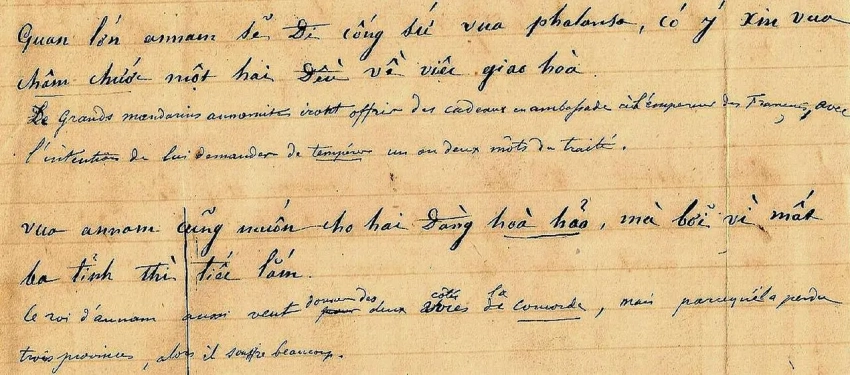 Quan lớn annam sẽ Đi cống sứ vua phalansa, có ý xin vua
châm chước một hai Đều về viêc giao hoà.
De Grands mandarins annamites iront offrir des cadeaux en ambassade à l'Empereur des Français, avec
l'intention de lui demander de tempérer un ou deux mots du traité.
vua annam cũng muốn cho hai Đàng hoà hảo, mà bởi vì mất
ba tỉnh thì tiếc lắm.
le roi d'annam aussi veut donner des deux côtés la concorde, mais parcequ'il a perdu
trois provinces, alors il souffre beaucoup.